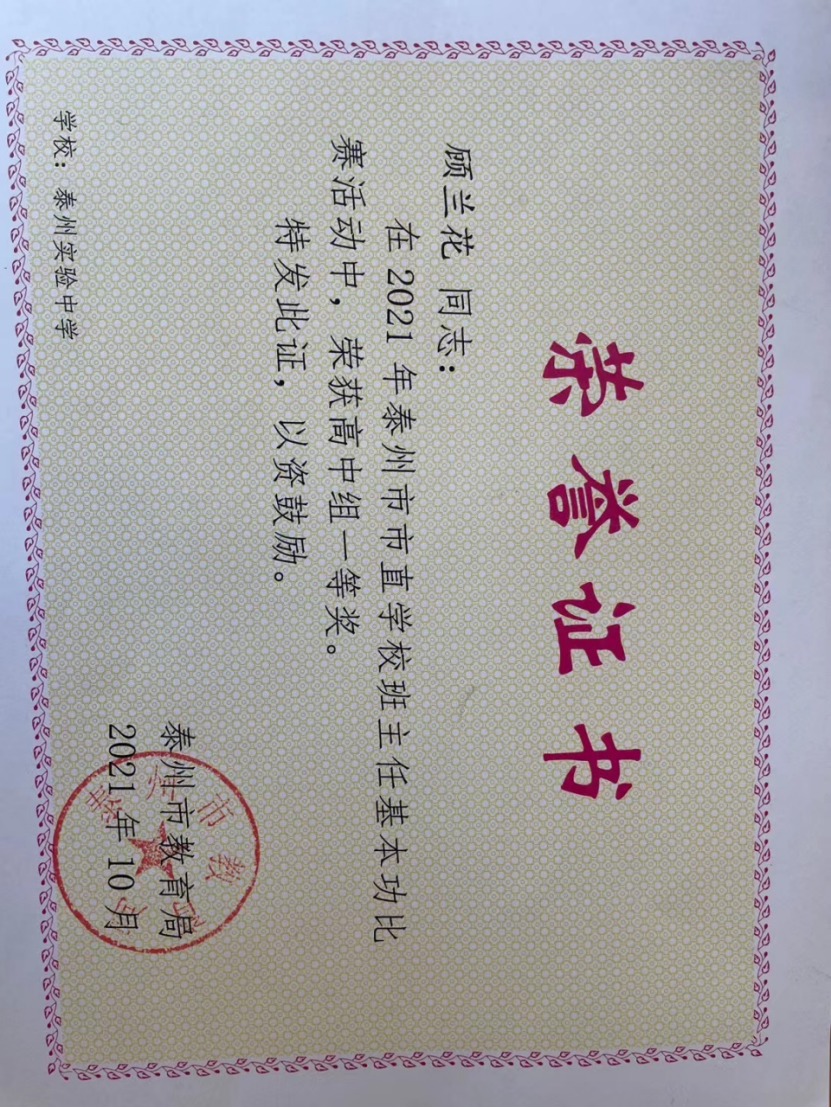 荣誉证书
顾兰花 同志：
在2021年泰州市市直学校班主任基本功比
赛活动中，荣获高中组一等奖。
特发此证，以资鼓励。
泰州市教育局
2021年10月
学校：泰州实验中学
泰州市教育局